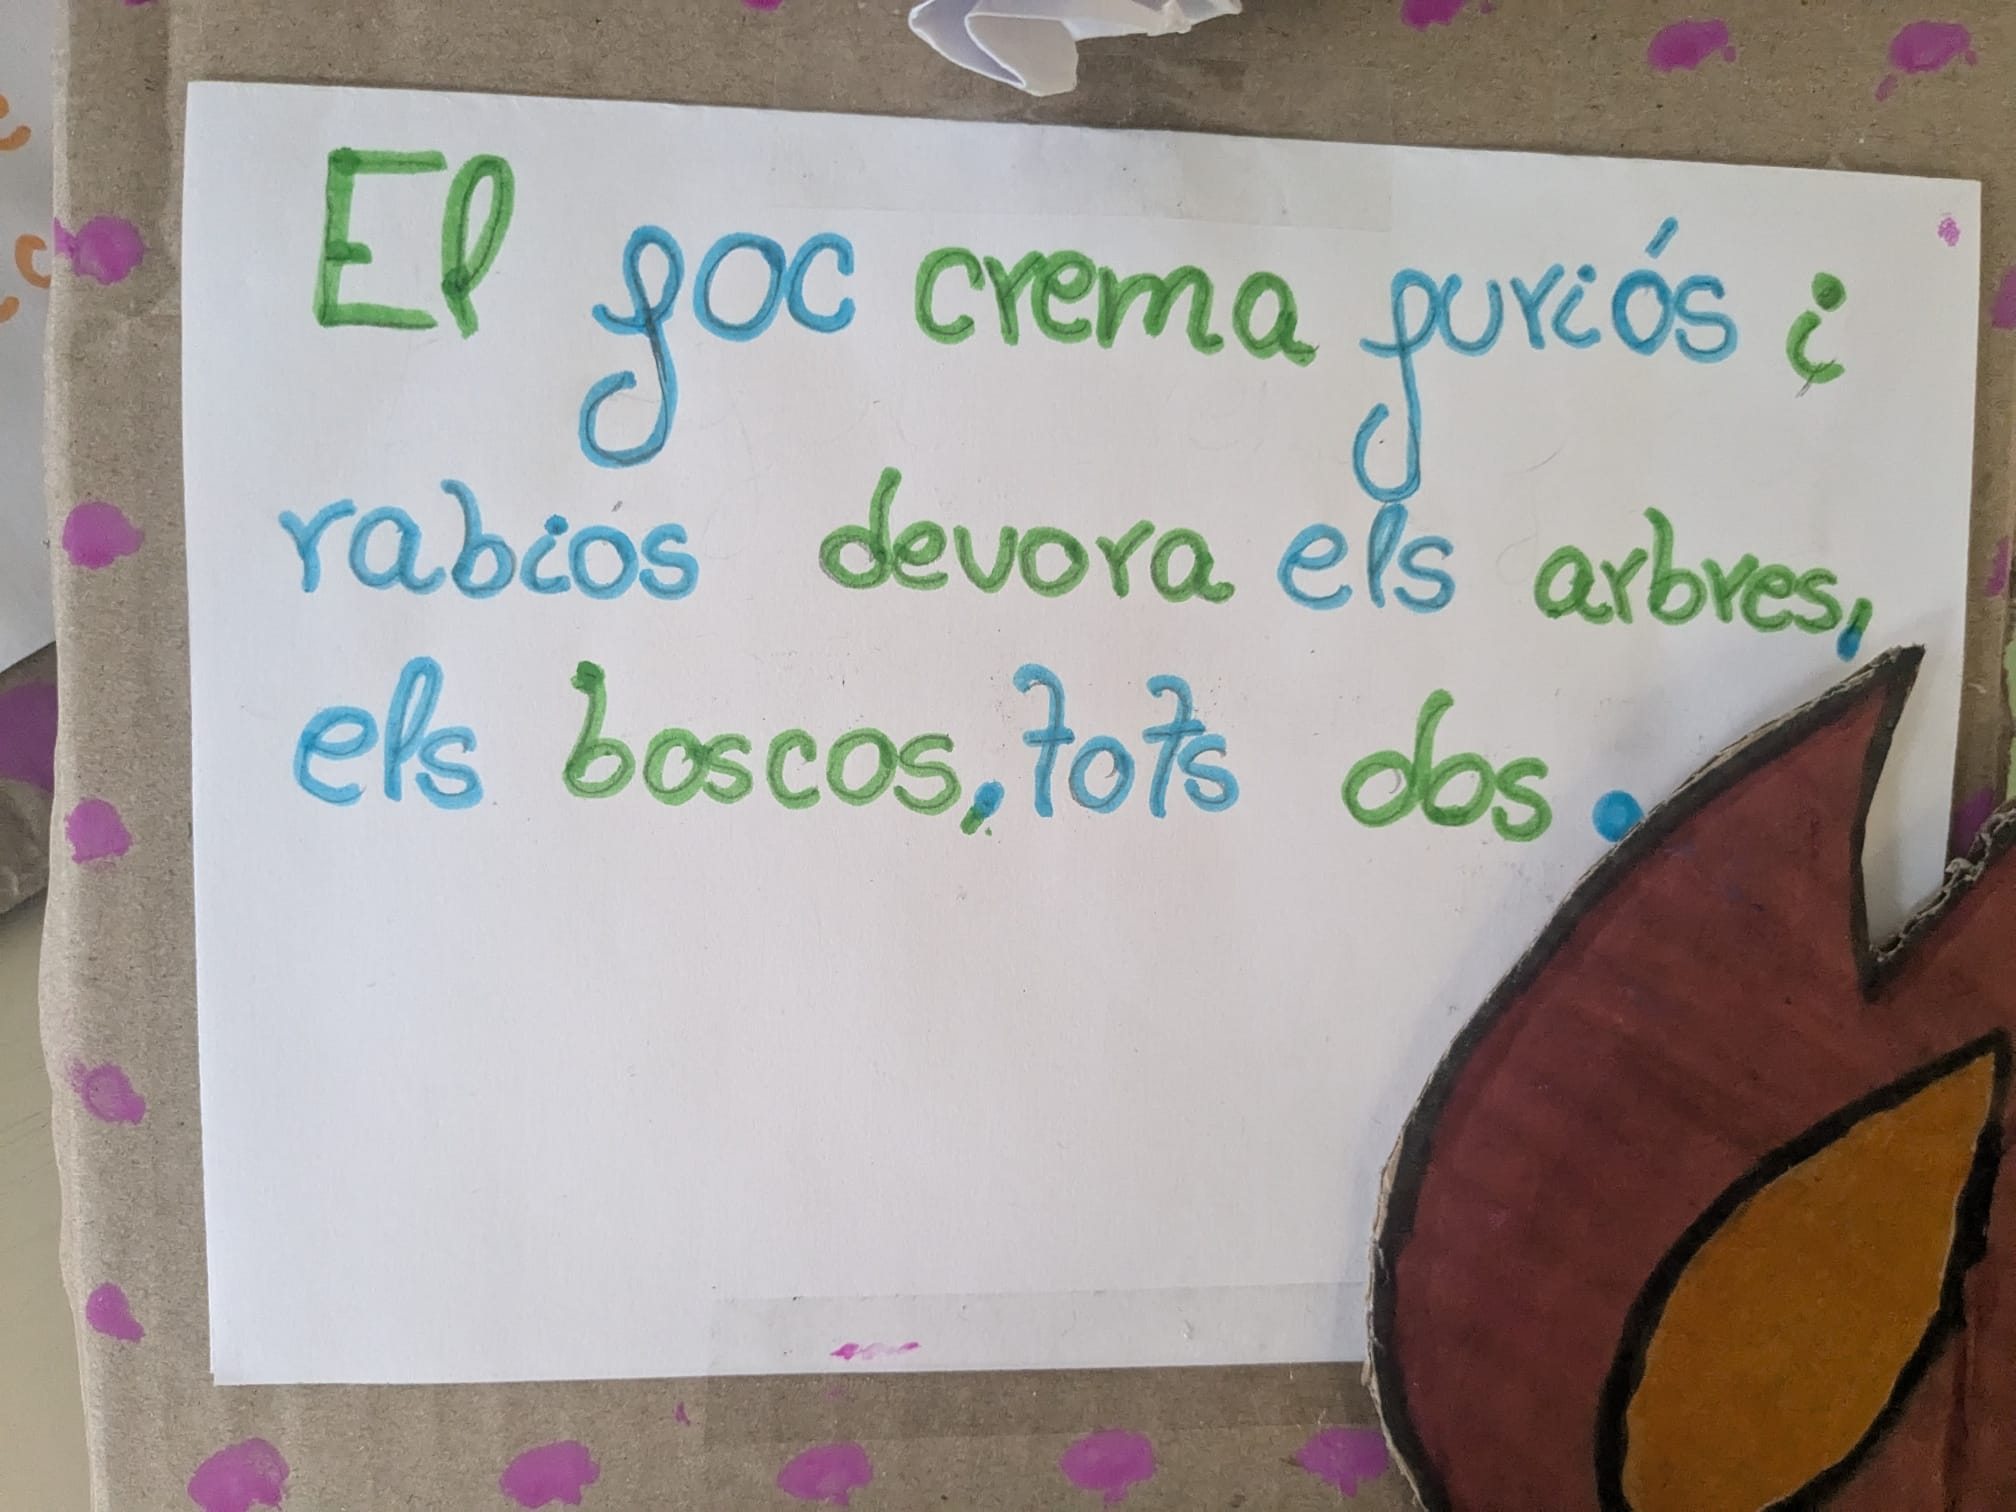 El foc crema furiós i
rabios devora els arbres,
els boscos, tots dos.